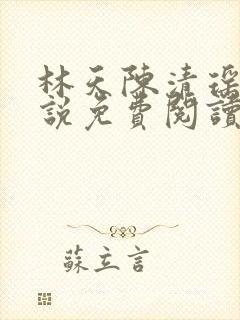 林天陳清瑤
說免費閱讀
蘇立言